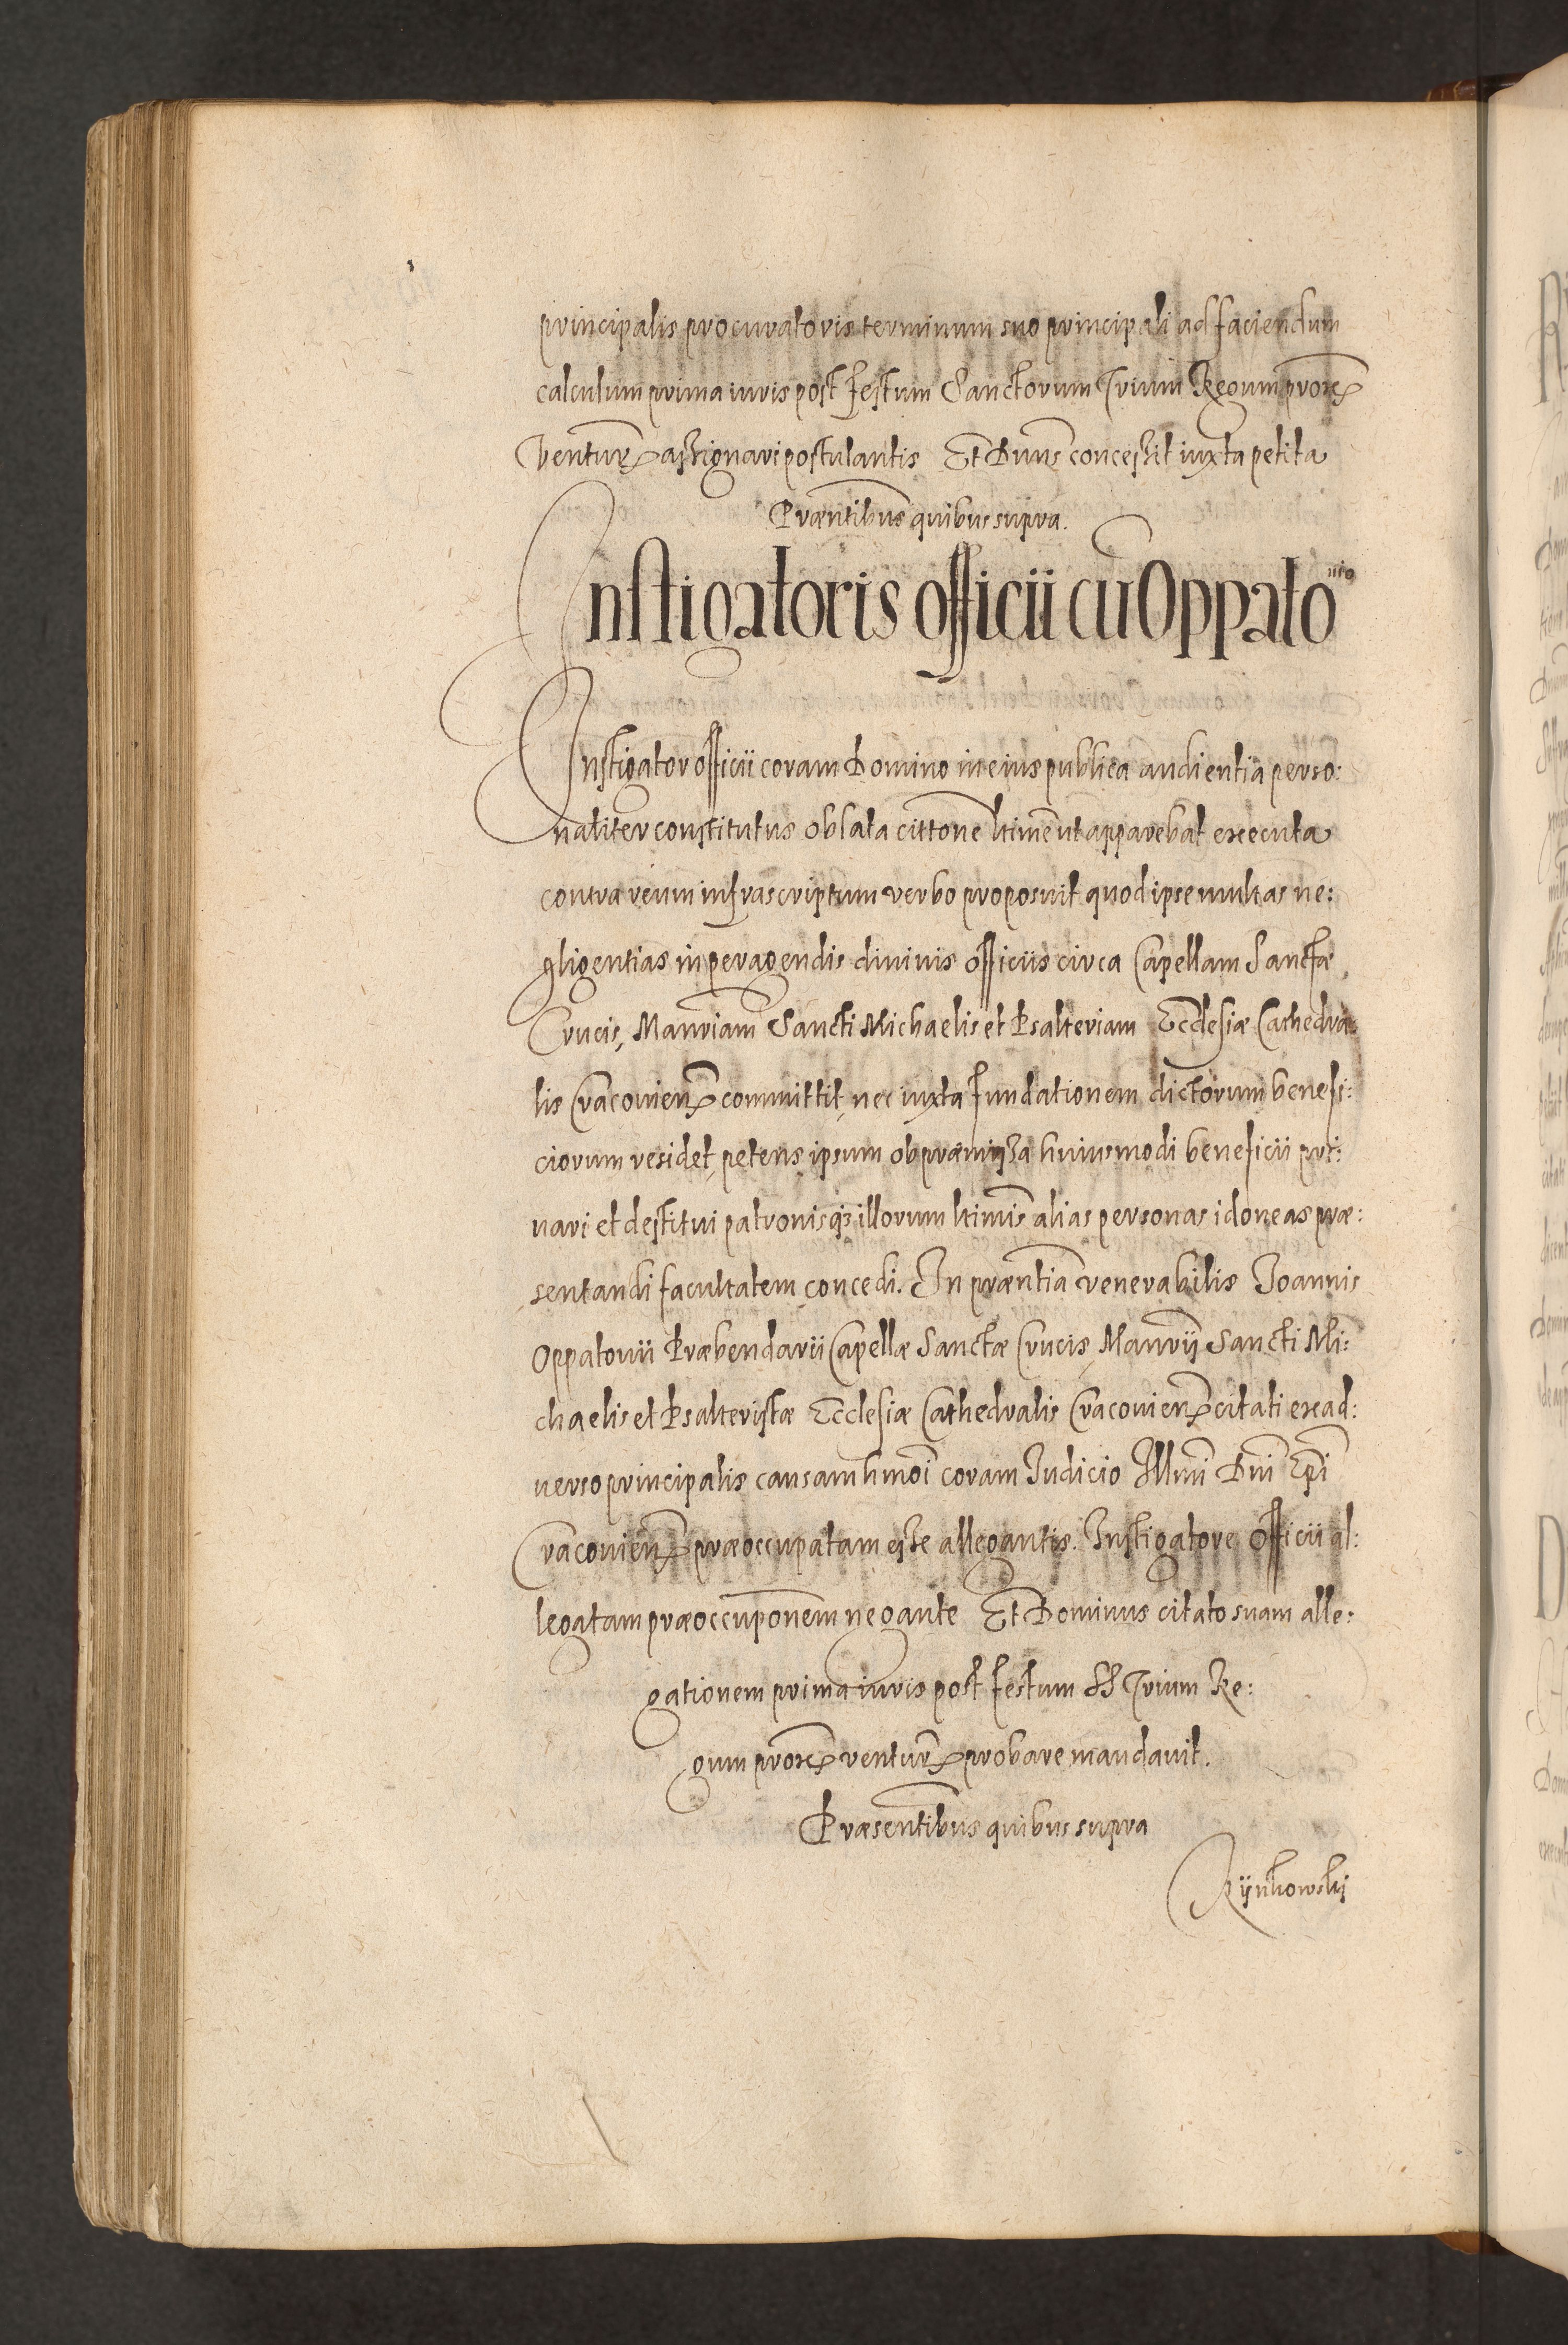 principalis procuratoris terminum suo principali ad faciendum
calculum prima iuris post festum Sanctorum Trium Regum proxẽ
ventur̃ assignari postulantis Et Dnus concessit iuxta petita
Præntibus quibus supra.
Instigatoris officii cũ Oppatouio
Instigator officii coram Domino in eius publica audientia perso:
naliter constitutus oblata cittone ltime ut apparebat executa
contra reum infrascriptum verbo proposuit quod ipse multas ne:
gligentias in peragendis diuinis officiis circa Capellam Sanctæ
Crucis, Mansriam Sancti Michaelis et Psalteriam Ecclesiæ Cathedra:
lis Cracouien̄ committit, nec iuxta fundationem dictorum benefi:
ciorum residet, petens ipsum ob præmissa huiusmodi beneficii pri:
uari et destitui patronisq3 illorum ltimis alias personas idoneas præ:
sentandi facultatem concedi. In præntia venerabilis Joannis
Oppatouii Præbendarii Capellæ Sanctæ Crucis, Mansrij Sancti Mi:
chaelis et Psalteristæ Ecclesiæ Cathedralis Cracouien̄ citati ex ad:
uerso principalis causam hmoi coram Judicio Illmi Dni Epi
Cracouien̄ præoccupatam esse allegantis. Instigatore Officii al:
legatam præoccuponem negante Et Dominus citato suam alle:
gationem prima iuris post festum SS Trium Re:
gum proxẽ ventur̃ probare mandauit.
Præsentibus quibus supra
Rÿnkowski